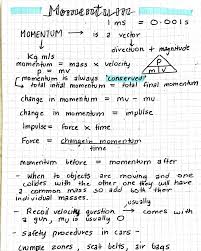 Momentum
1 ms = 0.001s
MOMENTUM → is a vector
direction + magnitude
kg m/s
momentum = mass x velocity
p = mv
P
m v
momentum is always "conserved"
total initial momentum = total final momentum
change in momentum = mv - mu
change in momentum = impulse
Impulse = force x time
Force = change in momentum
time
momentum before = momentum after
- When to objects are moving and one
collides with the other one they will have
a common mass so add both their
individual masses.
usually
- Recoil velocity question → comes with
a gun, mu is usually 0
- Safety procedures in cars -
crumple zones, seat belts, air bags